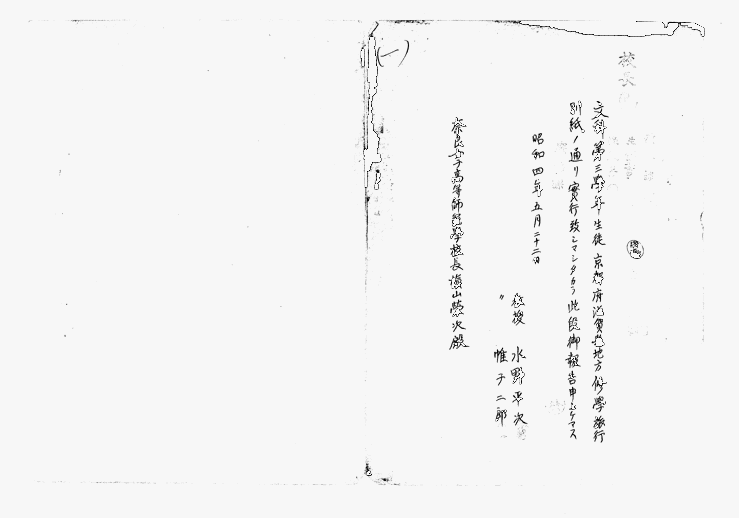 (一)
校長
文科第三學年生徒京都府滋賀縣地方修學旅行
別紙ノ通リ實行致シマシタカラ此段御報告申シマス
昭和四年五月二十二日
教授 水野平次
〃 帷子二郎
奈良女子高等師範學校長 槇山榮次殿